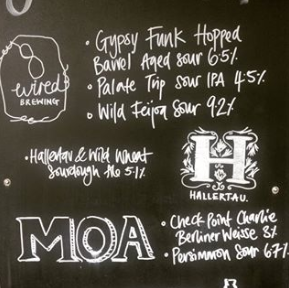 • Gypsy Funk Hopped
Barrel Aged sour 6.5%
• Palate Trip sour IPA 4.5%
• Wild Feijoa Sour 9.2%
BREWING
• Hallertau & Wild Wheat
Sourdough Ale 5.1%
H
HALLERTAU.
MOA
• Check Point Charlie
Berliner Weisse 3%
• Persimmon Sour 6.7%